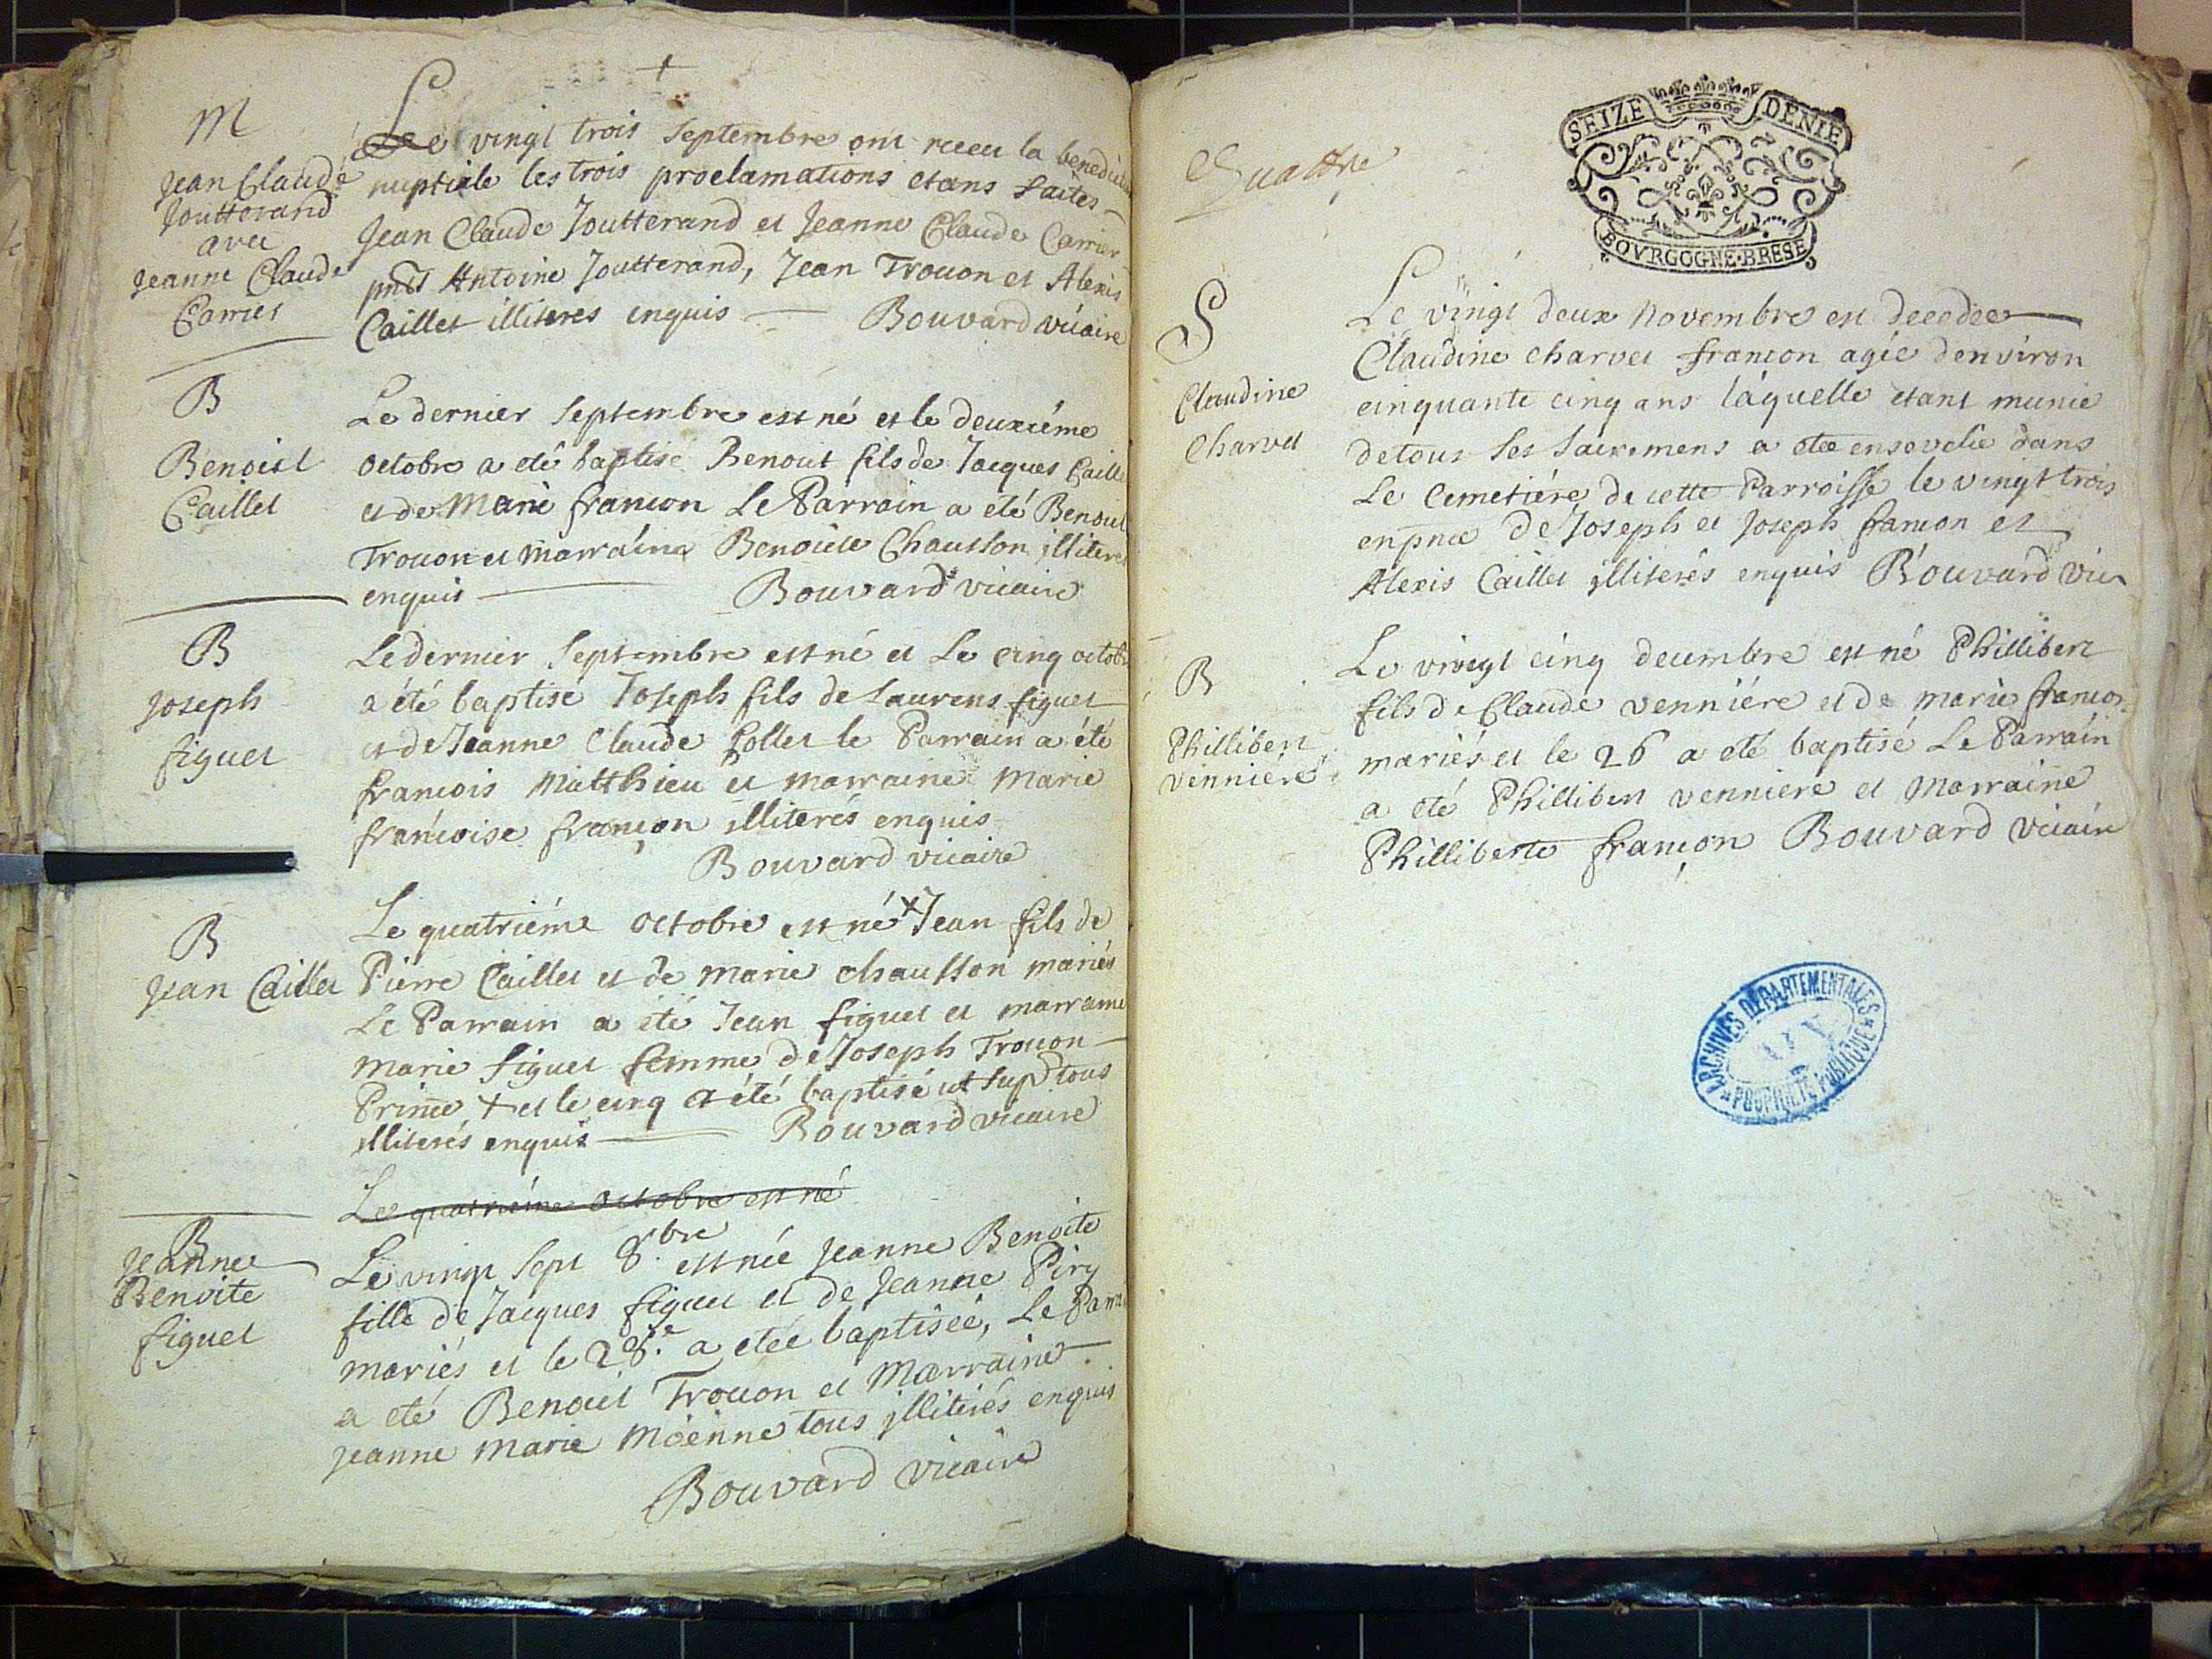 M
Jean Claude
Joutterand
avec
Jeanne Claude
Carrier
Le vingt trois Septembre ont receu la benedicti
nuptiale les trois proclamations etans faites
Jean Claude Joutterand et Jeanne Claude Carrier
pnts Antoine Joutterand, Jean Trouon et Alexis
Caillet illiterés enquis Bouvard vicaire
B
Benoist
Caillet
Le dernier Septembre est né et le deuxiéme
octobre a eté baptisé Benoit fils de Jacques Caille
et de Marie françon Le Parrain a eté Benoit
Trouon et marraine Benoite Chausson illiteres
enquis Bouvard vicaire
B
Joseph
figuet
Le dernier Septembre est né et Le cinq octob
a été baptise Joseph fils de Laurens figuet
et de Jeanne Claude Collet le Parrain a été
francois Matthieu et marraine Marie
francoise françon illiterés enquis
Bouvard vicaire
B
Jean Caillet
Le quatriéme octobre est né + Jean fils de
Pierre Caillet et de marie chausson mariés
Le Parrain a été Jean figuet et marraine
Marie figuet femme de Joseph Trouon
Prince + et le cinq a été baptisé ut sup tous
illiterés enquis Bouvard vicaire
Le quatriéme octobre est né
B
Jeanne
Benoite
figuet
Le vingt sept 8.bre est née Jeanne Benoite
fille de Jacques figuet et de Jeanne Piry
mariés et le 28.e a etée baptisée, Le Parra
a eté Benoit Trouon et Marraine
Jeanne Marie Moënne tous illiterés enquis
Bouvard vicaire
Quattre
SEIZE DENIE
BOVRGOGNE·BRESE
S
Claudine
Charvet
Le vingt deux Novembre est decedée
Claudine charvet françon agée denviron
cinquante cinq ans laquelle etant munie
de tous Ses Sacremens a etee ensevelie dans
Le Cemetiére de cette Parroisse le vingt trois
en pnce de Joseph et Joseph françon et
Alexis Caillet illiterés enquis Bouvard vic
B
Phillibert
venniére
Le vingt cinq decembre est né Phillibert
fils de Claude venniére et de marie françon
mariés et le 26 a eté baptisé Le Parrain
a eté Phillibert venniere et Marraine
Philliberte françon Bouvard vicaire
ARCHIVES DÉPARTEMENTALES
PROPRIÉTÉ PUBLIQUE